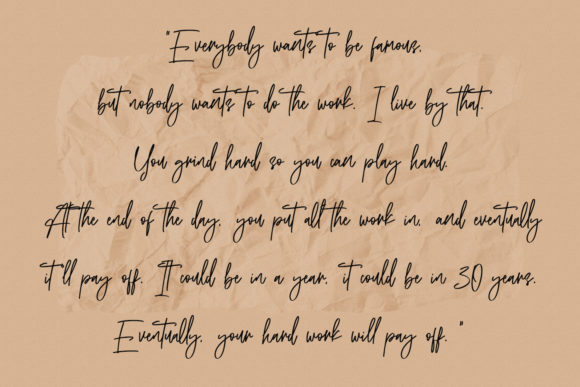 "Everybody wants to be famous,
but nobody wants to do the work. I live by that.
You grind hard so you can play hard.
At the end of the day, you put all the work in, and eventually
it'll pay off. It could be in a year, it could be in 30 years.
Eventually, your hard work will pay off. "